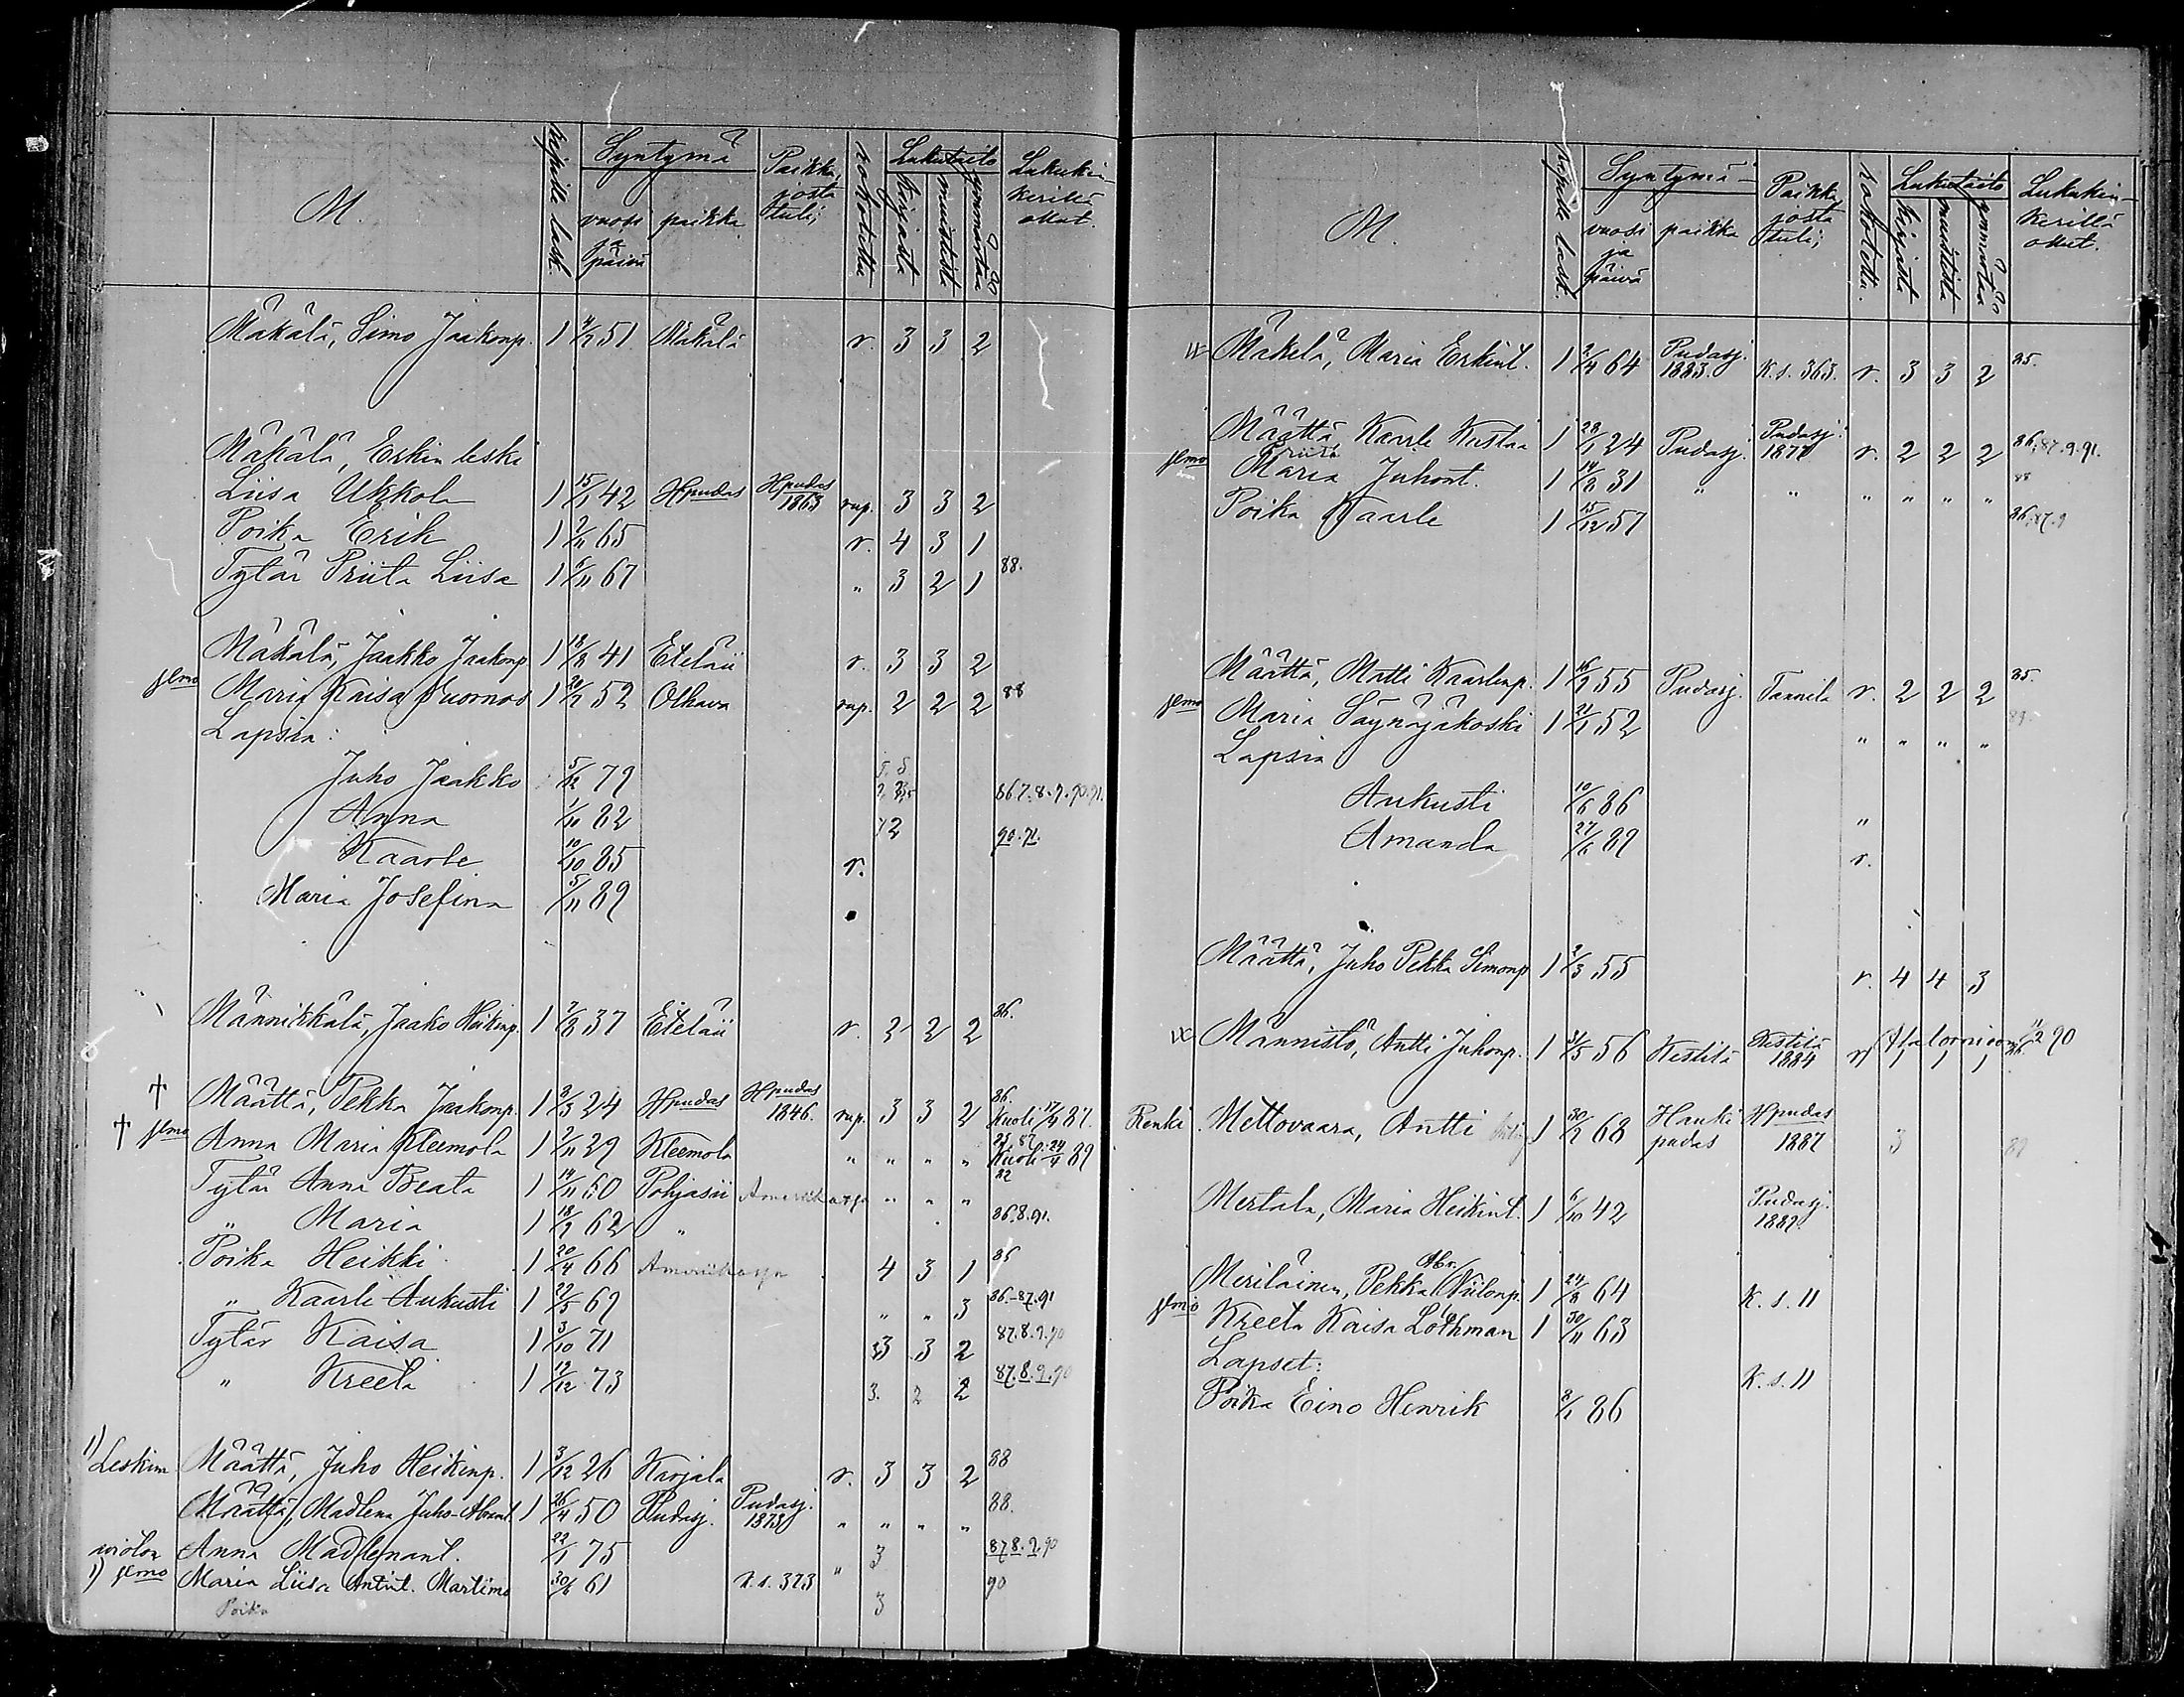 M.
Ripille lask.
Syntymä
vuosi ja päivä
paikka
Paikka, josta tuli;
rokotettu
Lukutaito
kirjasta
muistista
ymmärtää
Lukukinkerillä ollut.
Mäkälä, Simo Jaakonp. 1 51 Mäkälä r. 3 3 2
Mäkälä, Erkin leski
Liisa Ukkola 1 15/1 42 Hpudas Hpudas 1863 rup. 3 3 2
Poika Erik 1 2/11 65 r. 4 3 1
Tytär Priita Liisa 1 6/11 67 " 3 2 1 88.
Mäkälä, Jaakko Jaakonp 1 18/8 41 Eteläii r. 3 3 2
Maria Kaisa Vuornos 1 52 Olhava rup. 2 2 2 88
Lapsia:
Juho Jaakko 5/12 79 86.7.8.9.90.91.
Anna 1/11 82 90.91.
Kaarle 10/10 85 r.
Maria Josefina 5/11 89
Männikkälä, Jaako Heikinp. 1 7/8 37 Eteläii r. 2 2 2 86.
† Määttä, Pekka Jaakonp. 1 3/3 24 Hpudas Hpudas 1846. rup. 3 3 2 86. Kuoli 17/4 87.
† Anna Maria Kleemola 1 2/11 29 Kleemola " " " " Kuoli 24/4 89
Tytär Anna Beata 1 14/11 60 Pohjasii Amerikassa " " "
" Maria 1 62 " 86.8.91.
Poika Heikki 1 20/4 66 Amerikassa 4 3 1 85
" Kaarle Aukusti 1 22/5 69 " " 3 86.-87.91
Tytär Kaisa 1 3/10 71 3 3 2 87.8.9.90
" Kreeta 1 19/12 73 3. 2 2 87.8.9.90
1) Leskim. Määttä, Juho Heikinp. 1 3/12 26 Karjala r. 3 3 2 88
Määttä, Madlena Juho-Abramt. 1 26/4 50 Pudasj. Pudasj. 1873 " " " " 88.
Anna Madlenant. 22/1 75 " 3 878.9.90
1) Maria Liisa Antint. Martimo 30/6 61 K.s. 323 3 90
Poika
M.
Ripille lask.
Syntymä
vuosi ja päivä
paikka
Paikka, josta tuli;
rokotettu.
Lukutaito
kirjasta
muistista
ymmärtää
Lukukinkerillä ollut.
Mäkelä, Maria Erkint. 1 2/4 64 Pudasj. 1883. K.s. 363. r. 3 3 2 85.
Määttä, Kaarle Kustaa 1 28/1 24 Pudasj. Pudasj. 1877 r. 2 2 2 86.87.9.91.
Priita
Maria Juhont. 1 14/8 31 " " " " " " 88
Poika Kaarle 1 15/12 57 86.87.9
Määttä, Matti Kaarlenp. 1 55 Pudasj. Tannila r. 2 2 2 85.
Maria Säynäjäkoski 1 52 " " " " 89.
Lapsia
Aukusti 10/6 86 "
Amanda 27/6 89 r.
Määttä, Juho Pekka Simonp 1 55 r. 4 4 3
Männistö, Antti Juhonp. 1 31/5 56 Kestilä Kestilä 1884 r Alatornioon 90
Renki Mettovaara, Antti 1 68 Haukipudas Hpudas 1887 3 89
Mertala, Maria Heikint. 1 6/10 42 Pudasj. 1882.
Meriläinen, Pekka Abr. Niilonp. 1 24/8 64 K.s. 11
Kreeta Kaisa Lothman 1 30/11 63
Lapset:
Poika Eino Henrik 8/1 86 K.s. 11